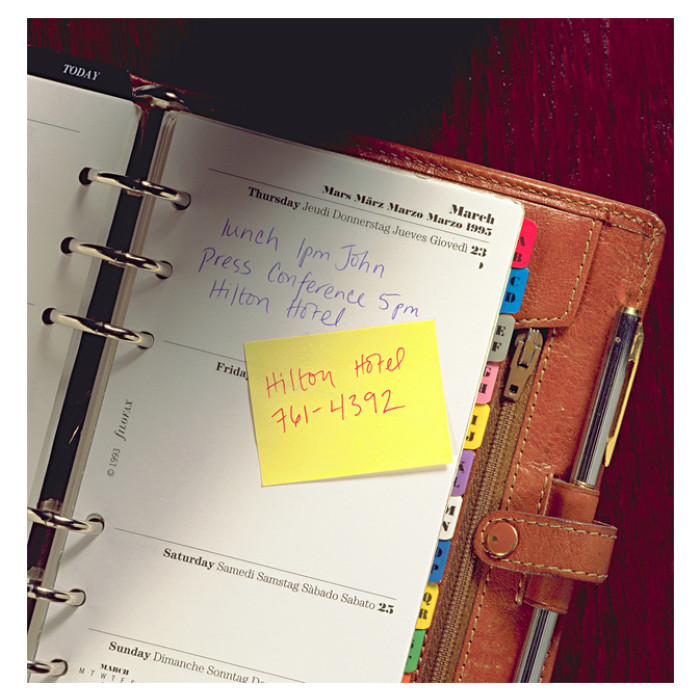 TODAY
March
Mars März Marzo Marzo 1995
Thursday Jeudi Donnerstag Jueves Giovedì 23
lunch 1pm John
Press Conference 5pm
Hilton Hotel
Hilton Hotel
761-4392
Friday
© 1993 filofax
Saturday Samedi Samstag Sàbado Sabato 25
Sunday Dimanche Sonntag Do
MARCH
M T W T F S
A
B
C
D
E
F
G
H
I
J
K
L
M
N
O
P
Q
R